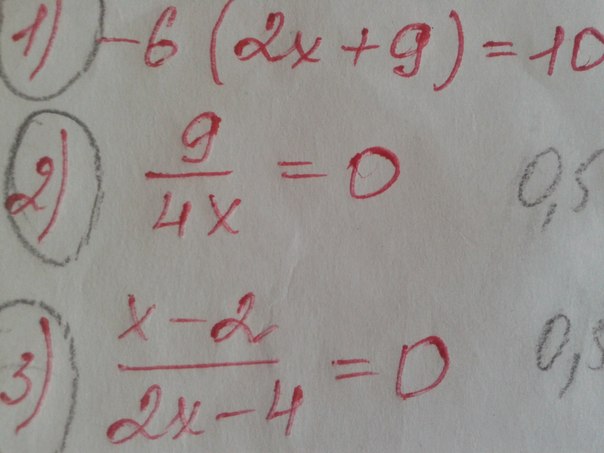 1) -6 (2x + 9) = 10
2) 9/4x = 0 0,5
3) x - 2/2x - 4 = 0 0,5